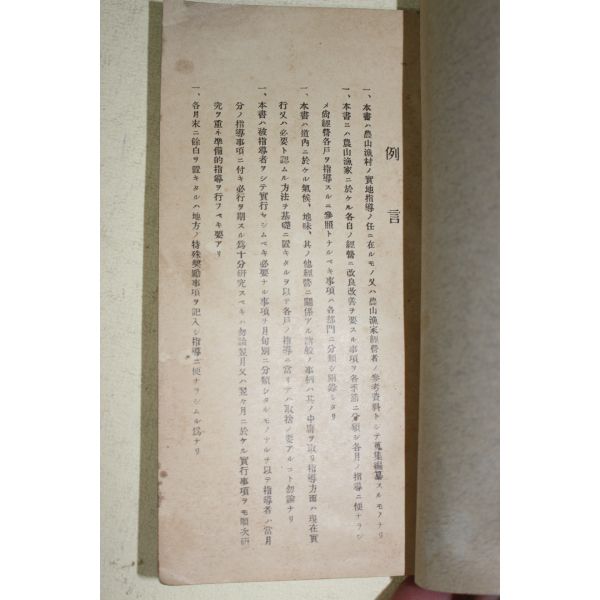 例言
一、本書ハ農山漁村ノ實地指導ノ任ニ在ルモノ又ハ農山漁家經營者ノ參考資料トシテ蒐集編纂スルモノナリ
一、本書ニハ農山漁家ニ於ケル各自ノ經營ニ改良改善ヲ要スル事項ヲ各季節ニ分類シ各月ノ指導ニ便ナラシ
メ尙經營各戶ヲ指導スルニ參照トナルベキ事項ハ各部門ニ分類シ別錄シタリ
一、本書ハ道內ニ於ケル氣候、地味、其ノ他經營ニ關係アル諸般ノ事柄ハ其ノ中庸ヲ取リ指導方面ハ現在實
行又ハ必要ト認ムル方法ヲ基礎ニ置キタルヲ以テ各戶ノ指導ニ當リテハ取捨ノ要アルコト勿論ナリ
一、本書ハ被指導者ヲシテ實行セシムベキ必要ナル事項ヲ月旬別ニ分類シタルモノナルヲ以テ指導者ハ當月
分ノ指導事項ニ付キ必行ヲ期スル爲十分硏究スベキハ勿論翌月又ハ翌々月ニ於ケル實行事項ヲモ順次硏
究ヲ重ネ準備的指導ヲ行フベキ要アリ
一、各月末ニ餘白ヲ置キタルハ地方ノ特殊獎勵事項ヲ記入シ指導ニ便ナラシムル爲ナリ